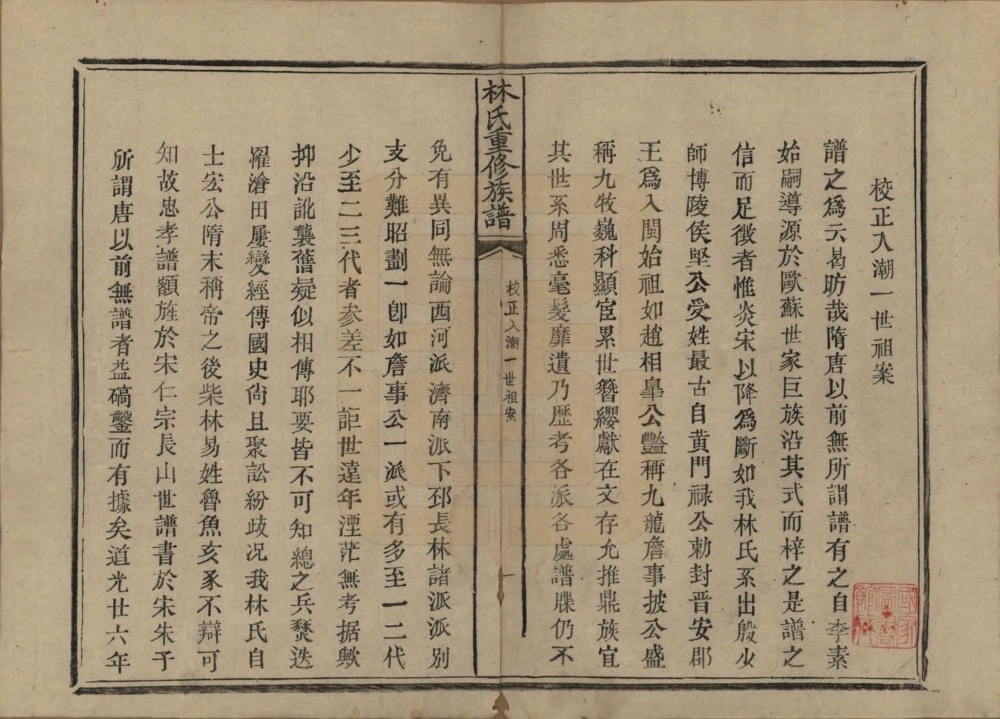 校正入潮一世祖案
譜之爲云曷昉哉隋唐以前無所謂譜有之自李素
始嗣導源於歐蘇世家巨族沿其式而梓之是譜之
信而足徵者惟炎宋以降爲斷如我林氏系出殷少
師博陵侯堅公受姓最古自黄門祿公勅封晋安郡
王爲入閩始祖如趙相臯公豔稱九龍詹事披公盛
稱九牧巍科顯宦累世簪纓獻在文存允推鼎族宜
其世系周悉毫髮靡遺乃歴考各派各處譜牒仍不
林氏重修族譜
校正入潮一世祖案
一
免有異同無論西河派濟南派下邳長林諸派派別
支分難昭劃一卽如詹事公一派或有多至一二代
少至二三代者參差不一詎世遠年湮茫無考据歟
抑沿訛襲舊疑似相傳耶要皆不可知總之兵燹迭
罹滄田屢變經傳國史尙且聚訟紛歧況我林氏自
士宏公隋末稱帝之後柴林易姓魯魚亥豕不辯可
知故忠孝譜額旌於宋仁宗長山世譜書於宋朱子
所謂唐以前無譜者益碻鑿而有據矣道光廿六年